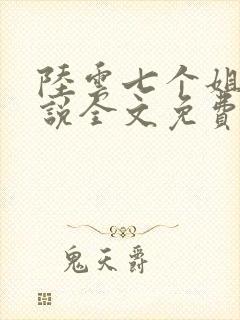 陸雲七个姐
説全文免費
鬼天爵